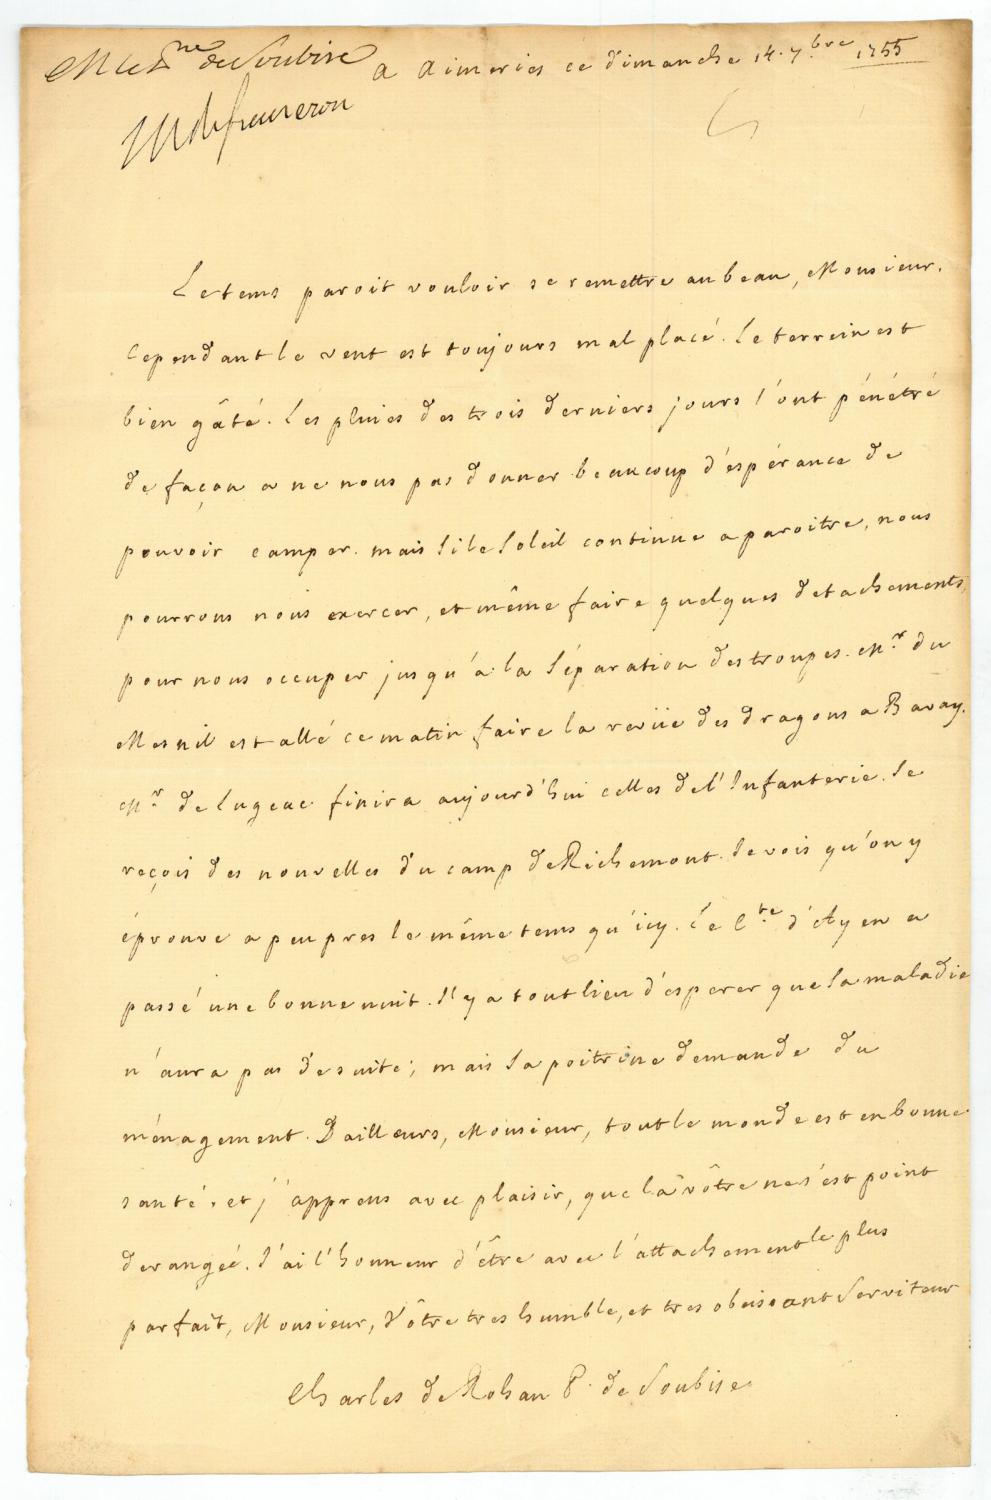 M le P.ne de Soubise
A Aimeries ce dimanche 14. 7.bre 1755
Le tems paroit vouloir se remettre au beau, Monsieur.
Cependant le vent est toujours mal placé. Le terrein est
bien gâté. Les pluies des trois derniers jours l'ont pénétré
de façon a ne nous pas donner beaucoup d'espérance de
pouvoir camper. mais si le Soleil continue a paroitre, nous
pourrons nous exercer, et même faire quelques detachements,
pour nous occuper jusqu'a la Séparation des troupes. Mr. du
Mesnil est allé ce matin faire la revüe des dragons a Bavay.
Mr. de Lugeac finira aujourd'hui celles de l'Infanterie. Je
reçois des nouvelles du camp de Richemont. Je vois qu'on y
éprouve a peu pres le même tems qu'icy. Le C.te d'Ayen a
passé une bonne nuit. Il y a tout lieu d'esperer que sa maladie
n'aura pas de suite; mais sa poitrine demande du
ménagement. D'ailleurs, Monsieur, tout le monde est en bonne
santé. et j'apprens avec plaisir, que la vôtre ne s'est point
derangée. J'ai l'honneur d'être avec l'attachement le plus
parfait, Monsieur, Vôtre tres humble, et tres obeissant Serviteur
Charles de Rohan P. de Soubise